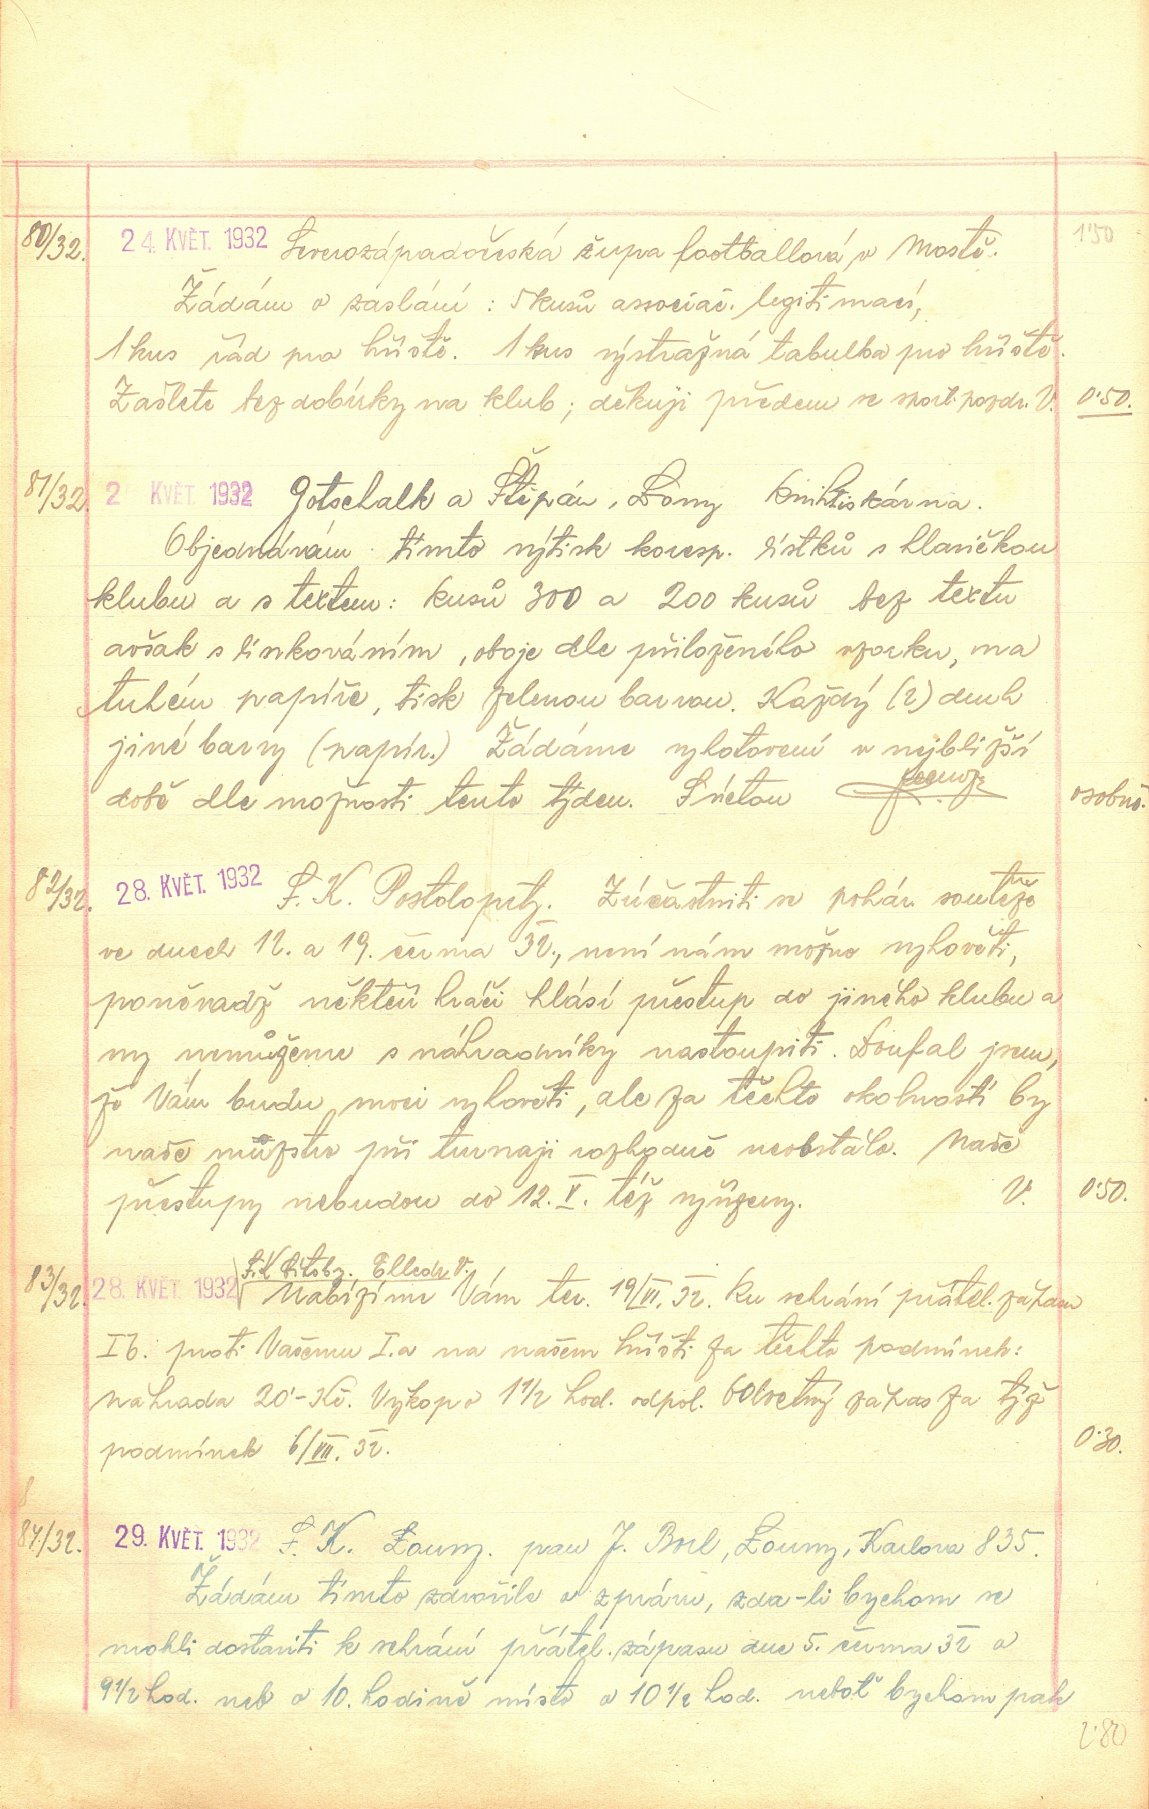 1'50
80/32. 24. KVĚT. 1932 Severozápadočeská župa footballová v Mostě.
Žádám o zaslání: 5 kusů associač. legitimací,
1 kus řád pro hřiště. 1 kus výstražná tabulka pro hřiště.
Zašlete bez dobírky na klub; děkuji předem se sport. pozdr. V. 0'50.
81/32. 2 KVĚT. 1932 Gotschalk a Štěpán, Louny Knihtiskárna.
Objednávám tímto výtisk koresp. lístků s hlavičkou
klubu a s textem: kusů 300 a 200 kusů bez textu
avšak s linkováním, oboje dle přiloženého vzorku, na
tuhém papíře, tisk zelenou barvou. Každý (2) druh
jiné barvy (papír.) Žádáme vyhotovení v nejbližší
době dle možnosti tento týden. S úctou osobně.
82/32. 28. KVĚT. 1932 S. K. Postoloprty. Zúčastniti se pohár. soutěže
ve dnech 12. a 19. června 32., není nám možno vyhověti,
poněvadž někteří hráči hlásí přestup do jiného klubu a
my nemůžeme s náhradníky nastoupiti. Doufal jsem,
že Vám budu moci vyhověti, ale za těchto okolností by
naše mužstvo při turnaji rozhodně neobstálo. Naše
přestupy nebudou do 12. V. též vyřízeny. V. 0'50.
S.K. Sitoby. Elledr V.
83/32. 28. KVĚT. 1932 Nabízíme Vám ter. 19/VI. 32. ku sehrání přátel. zápasu
I b. proti Vašemu I.a na našem hřišti za těchto podmínek:
náhrada 20'- Kč. Výkop o 1 1/2 hod. odpol. Odvetný zápas za týž
podmínek 6/VII. 32. 0'30.
84/32. 29. KVĚT. 1932 S. K. Louny. pan J. Brel, Louny, Karlova 835.
Žádám tímto zdvořile o zprávu, zda-li bychom se
mohli dostaviti k sehrání přátel. zápasu dne 5. června 32 o
9 1/2 hod. neb o 10. hodině místo o 10 1/2 hod. neboť bychom pak
2'80